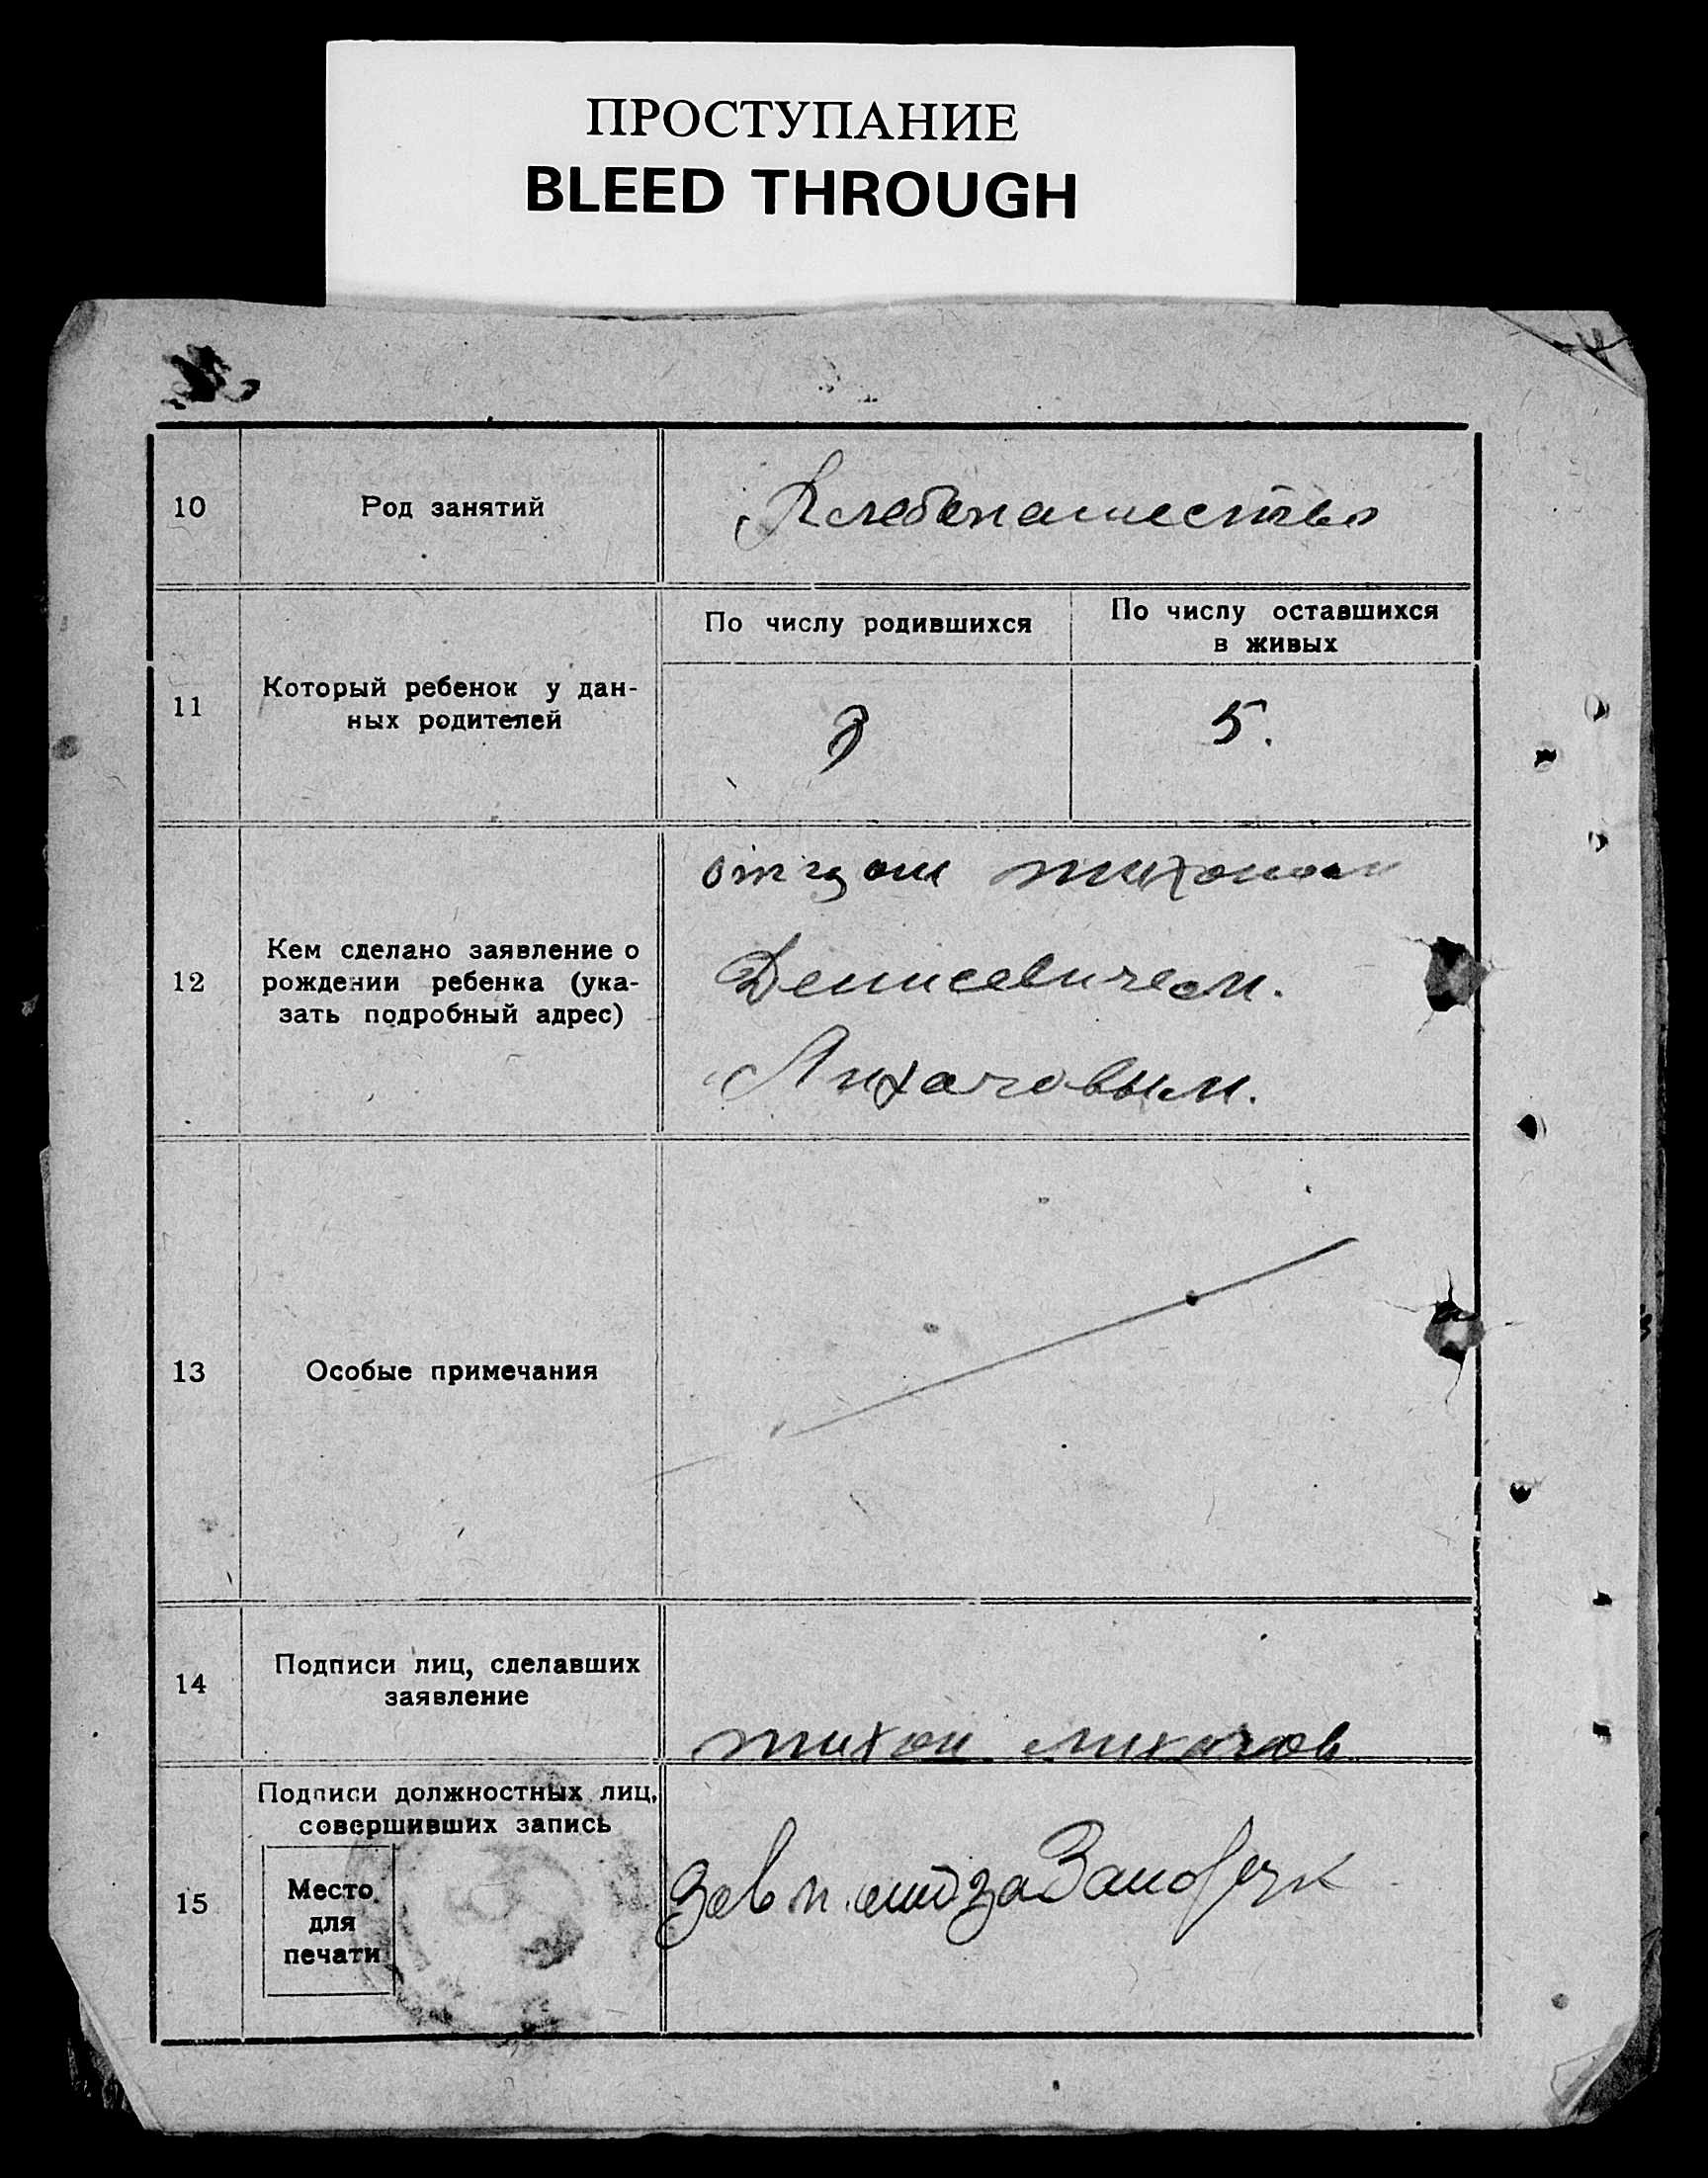 ПРОСТУПАНИЕ
BLEED THROUGH
10
Род занятий
Хлебопашество
11
Который ребенок у дан-
ных родителей
По числу родившихся
По числу оставшихся
в живых
5.
12
Кем сделано заявление о
рождении ребенка (ука-
зать подробный адрес)
отцом тихоном
Денисевичем.
Лихачовым.
13
Особые примечания
14
Подписи лиц, сделавших
заявление
тихон лихачов
15
Подписи должностных лиц,
совершивших запись
Место
для
печати
Зав п.